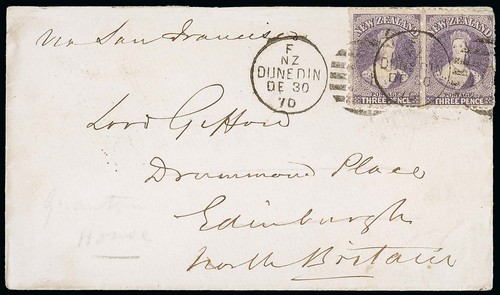 Via San Francisco
NEW ZEALAND
NEW ZEALAND
POSTAGE
POSTAGE
THREE PENCE
THREE PENCE
F
NZ
DUNEDIN
DE 30
70
DUNEDIN
DE 30
Lord Gifford
Drummond Place
Edinburgh
North Britain
House